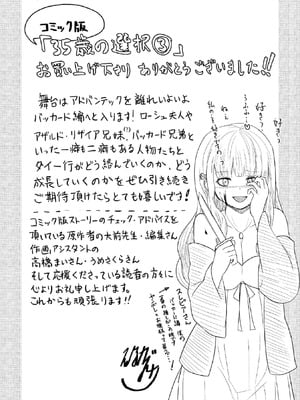 コミック版
「35歳の選択③」
お買い上げ下さり ありがとうございました!!
舞台はアドバンテックを離れいよいよ
パッカード編へと入ります! ローシュ夫人や
アザルド・リザイア兄妹、パッカード兄弟と
いった一癖も二癖もある人物たちと
タイ一行がどう絡んでいくのか、どう
成長していくのかをぜひ引き続き
ご期待頂けたらとても嬉しいです!
コミック版ストーリーのチェック、アドバイスを
頂いている原作者の大前先生・編集さん
作画アシスタントの
高橋まいさん・うめさくらさん
そして応援くださっている読者の方々に
心よりお礼申し上げます。
これからも頑張ります!!
好きっ
好きっ